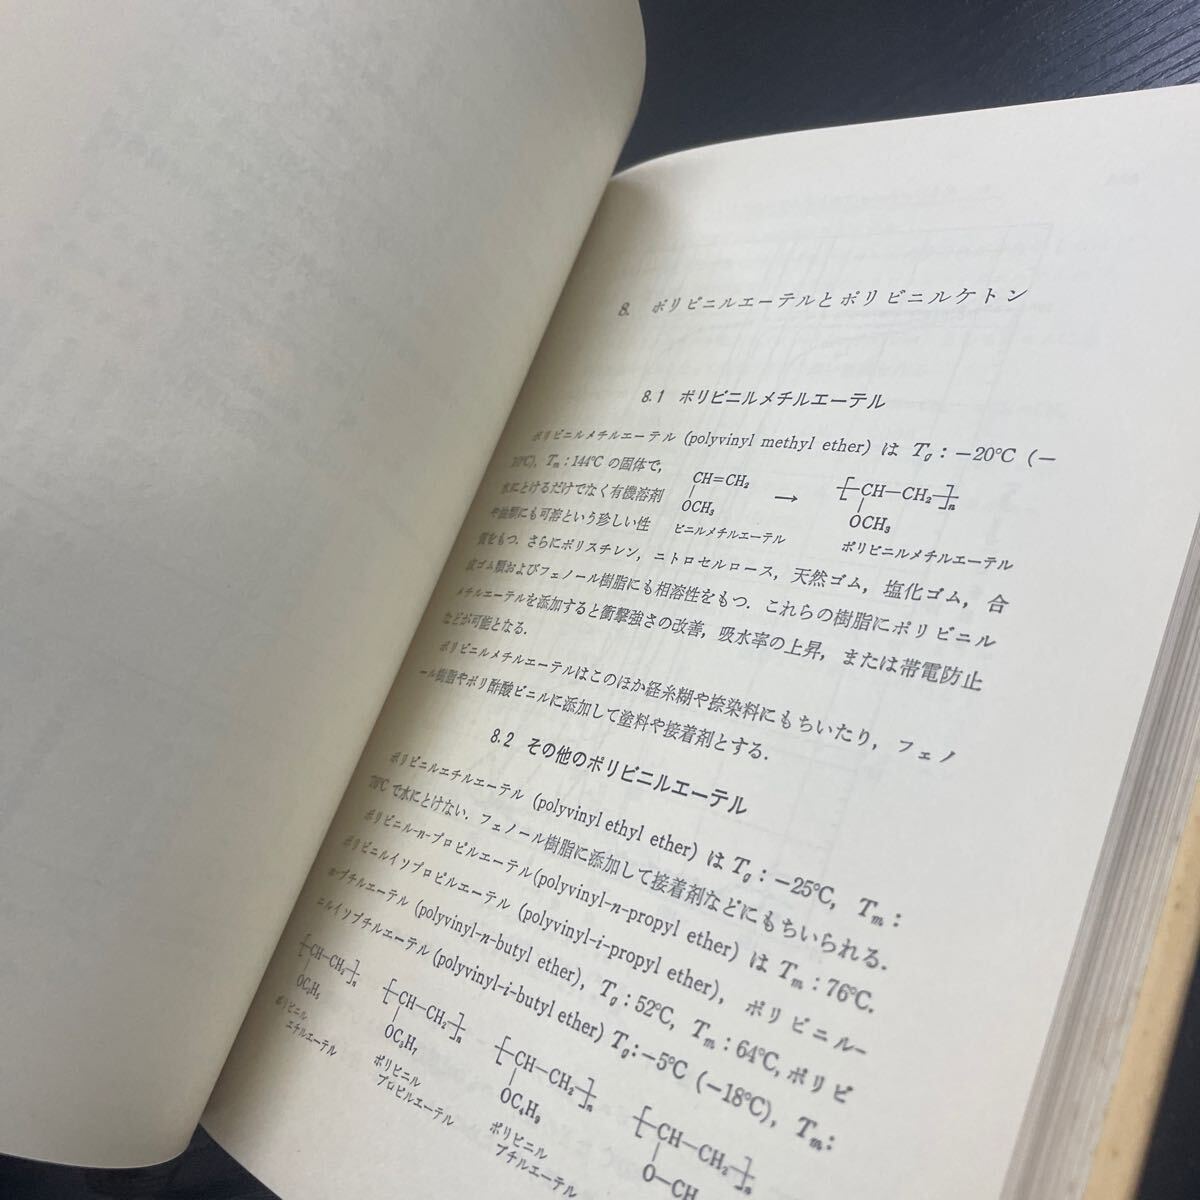 8. ポリビニルエーテルとポリビニルケトン
8.1 ポリビニルメチルエーテル
ポリビニルメチルエーテル (polyvinyl methyl ether) は Tg : −20℃ (−
℃), Tm : 144℃ の固体で,
水にとけるだけでなく有機溶剤
や油類にも可溶という珍しい性
CH=CH₂
OCH₃
ビニルメチルエーテル
→
[CH−CH₂]n
OCH₃
ポリビニルメチルエーテル
質をもつ. さらにポリスチレン, ニトロセルロース, 天然ゴム, 塩化ゴム, 合
成ゴム類およびフェノール樹脂にも相溶性をもつ. これらの樹脂にポリビニル
メチルエーテルを添加すると衝撃強さの改善, 吸水率の上昇, または帯電防止
などが可能となる.
ポリビニルメチルエーテルはこのほか経糸糊や捺染料にもちいたり, フェノ
ール樹脂やポリ酢酸ビニルに添加して塗料や接着剤とする.
8.2 その他のポリビニルエーテル
ポリビニルエチルエーテル (polyvinyl ethyl ether) は Tg : −25℃, Tm :
℃で水にとけない. フェノール樹脂に添加して接着剤などにもちいられる.
ポリビニル-n-プロピルエーテル(polyvinyl-n-propyl ether) は Tm : 76℃.
ポリビニルイソプロピルエーテル (polyvinyl-i-propyl ether), ポリビニル-
n-ブチルエーテル (polyvinyl-n-butyl ether), Tg : 52℃, Tm : 64℃, ポリビ
ニルイソブチルエーテル (polyvinyl-i-butyl ether) Tg:−5℃ (−18℃), Tm :
[CH−CH₂]n
OC₂H₅
ポリビニル
エチルエーテル
[CH−CH₂]n
OC₃H₇
ポリビニル
プロピルエーテル
[CH−CH₂]n
OC₄H₉
ポリビニル
ブチルエーテル
[CH−CH₂]n
O−CH